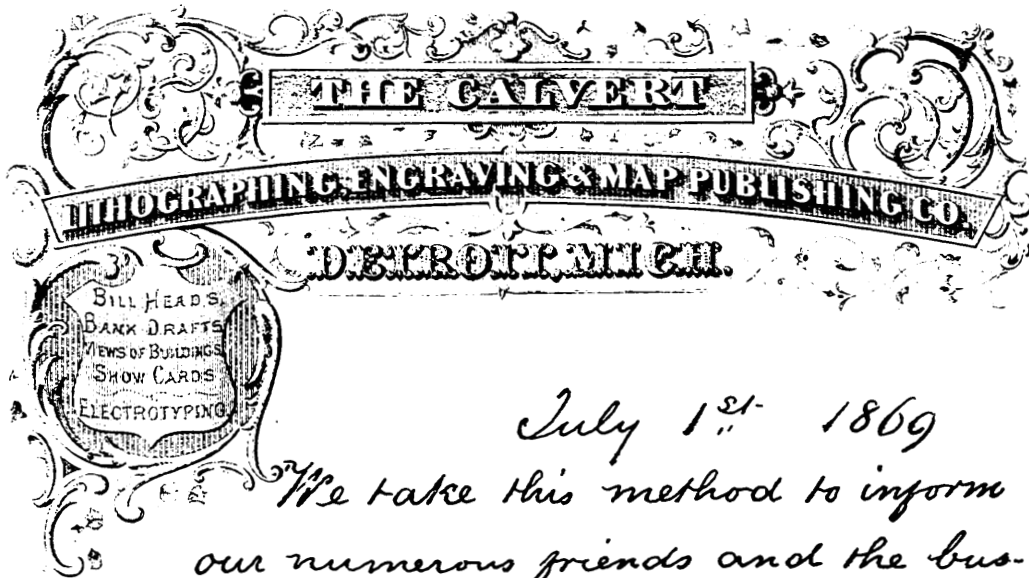 THE CALVERT
LITHOGRAPHING, ENGRAVING & MAP PUBLISHING CO.
DETROIT, MICH.
BILL HEADS,
BANK DRAFTS
VIEWS OF BUILDINGS
SHOW CARDS
ELECTROTYPING
July 1st 1869
We take this method to inform
our numerous friends and the bus-